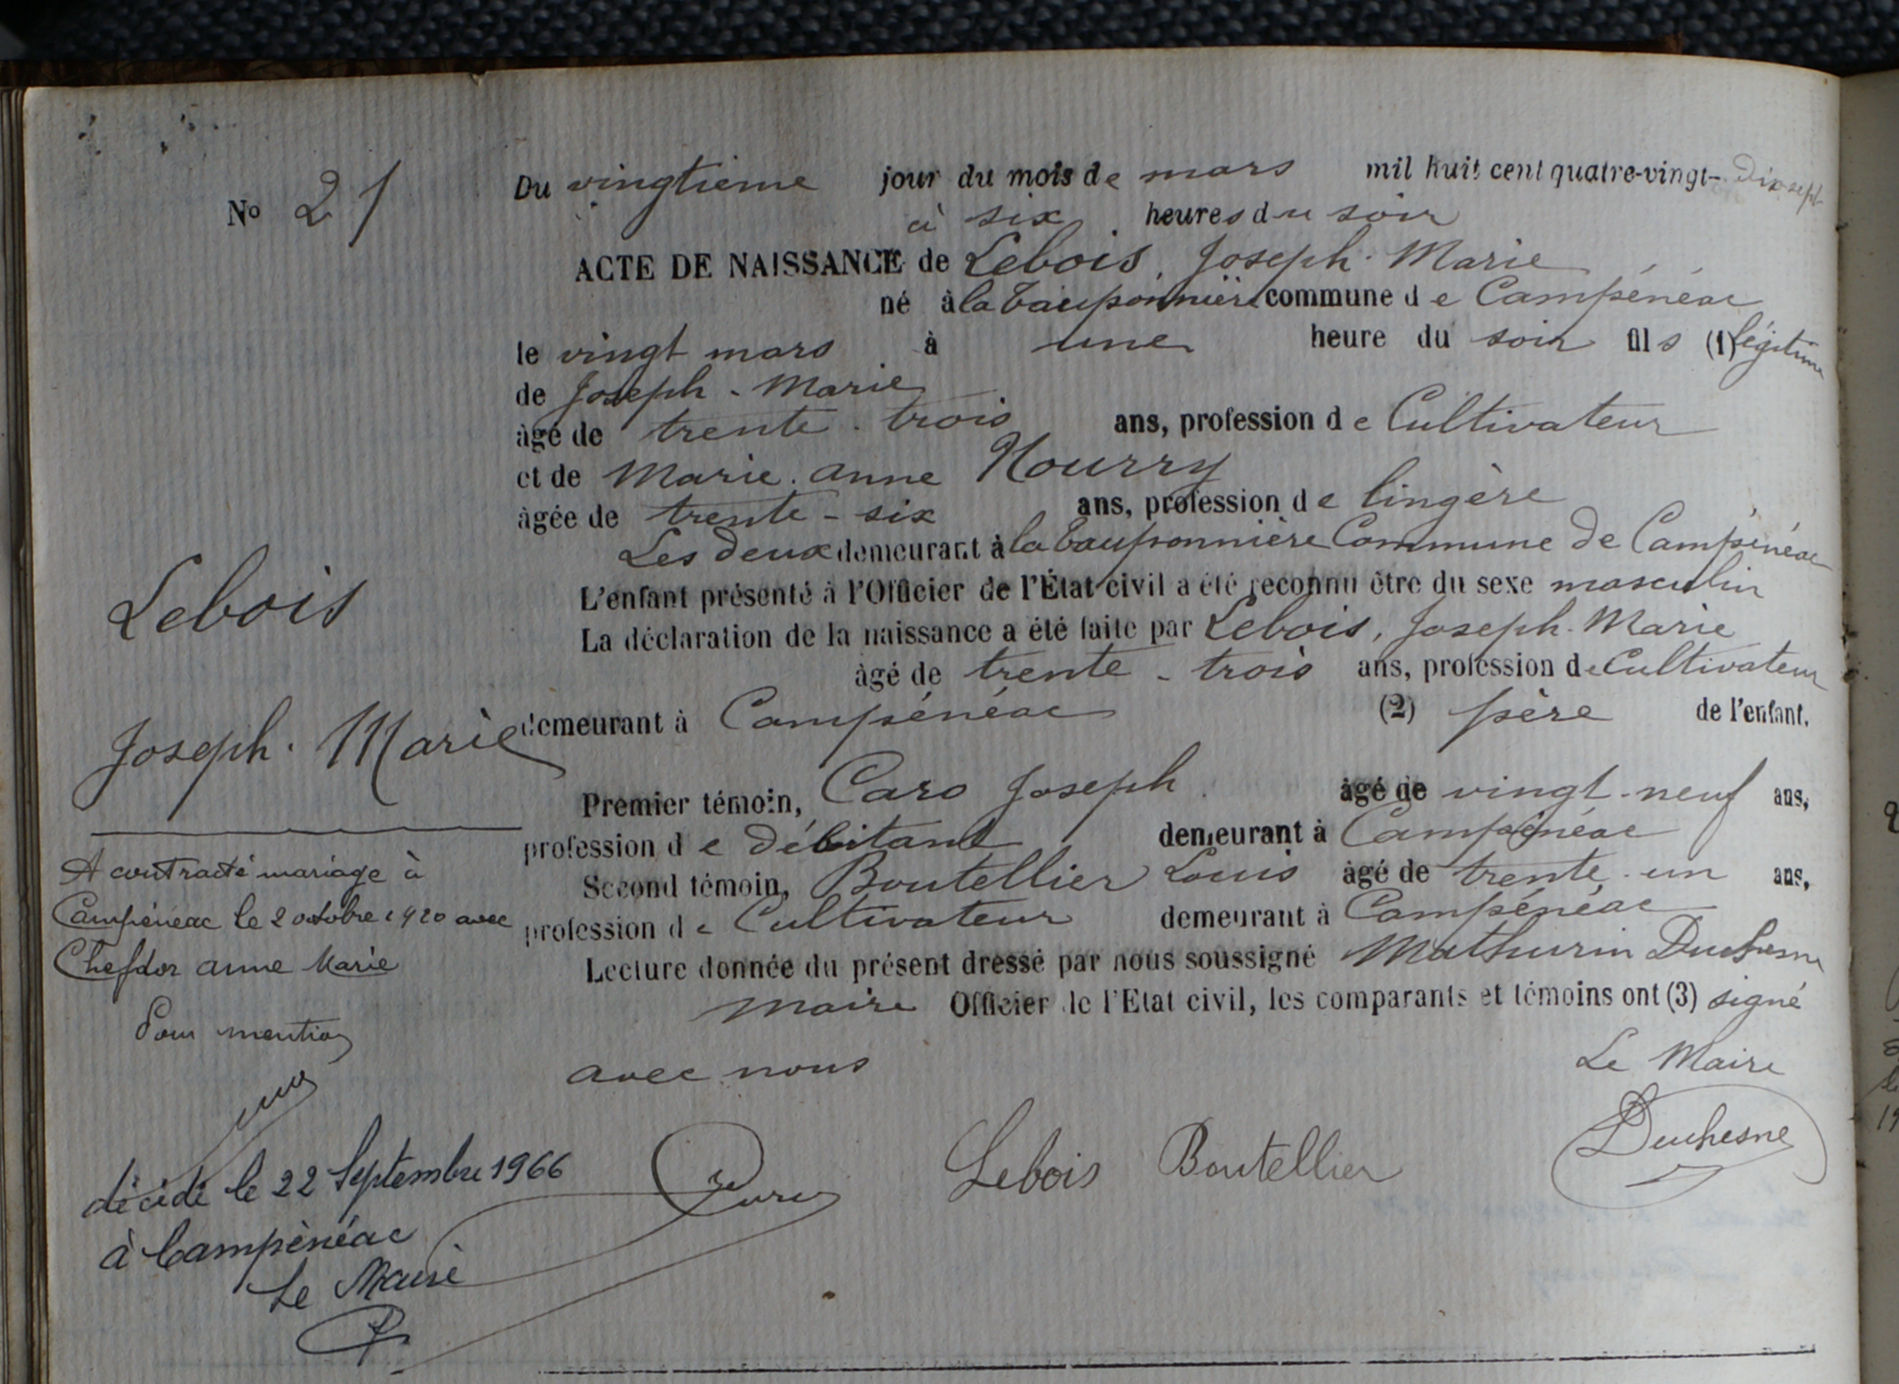 No 21
Du vingtième jour du mois de mars mil huit cent quatre-vingt-dix sept
à six heures du soir
ACTE DE NAISSANCE de Lebois, Joseph Marie
né à la Tauponnière commune de Campénéac
le vingt mars à une heure du soir fils (1) légitime
de Joseph-Marie
âgé de trente-trois ans, profession de Cultivateur
et de Marie-Anne Nourry
âgée de trente-six ans, profession de lingère
Les deux demeurant à la Tauponnière Commune de Campénéac
L'enfant présenté à l'Officier de l'État civil a été reconnu être du sexe masculin
La déclaration de la naissance a été faite par Lebois, Joseph-Marie
âgé de trente-trois ans, profession de Cultivateur
demeurant à Campénéac (2) père de l'enfant.
Premier témoin, Caro Joseph âgé de vingt-neuf ans,
profession de débitant demeurant à Campénéac
Second témoin, Boutellier Louis âgé de trente-un ans,
profession de Cultivateur demeurant à Campénéac
Lecture donnée du présent dressé par nous soussigné Mathurin Duchesne
maire Officier de l'Etat civil, les comparants et témoins ont (3) signé
avec nous
Le Maire
Lebois Boutellier Duchesne
Lebois
Joseph-Marie
A contracté mariage à
Campénéac le 2 octobre 1920 avec
Chefdor Anne Marie
Pour mention
décédé le 22 Septembre 1966
à Campénéac
Le Maire